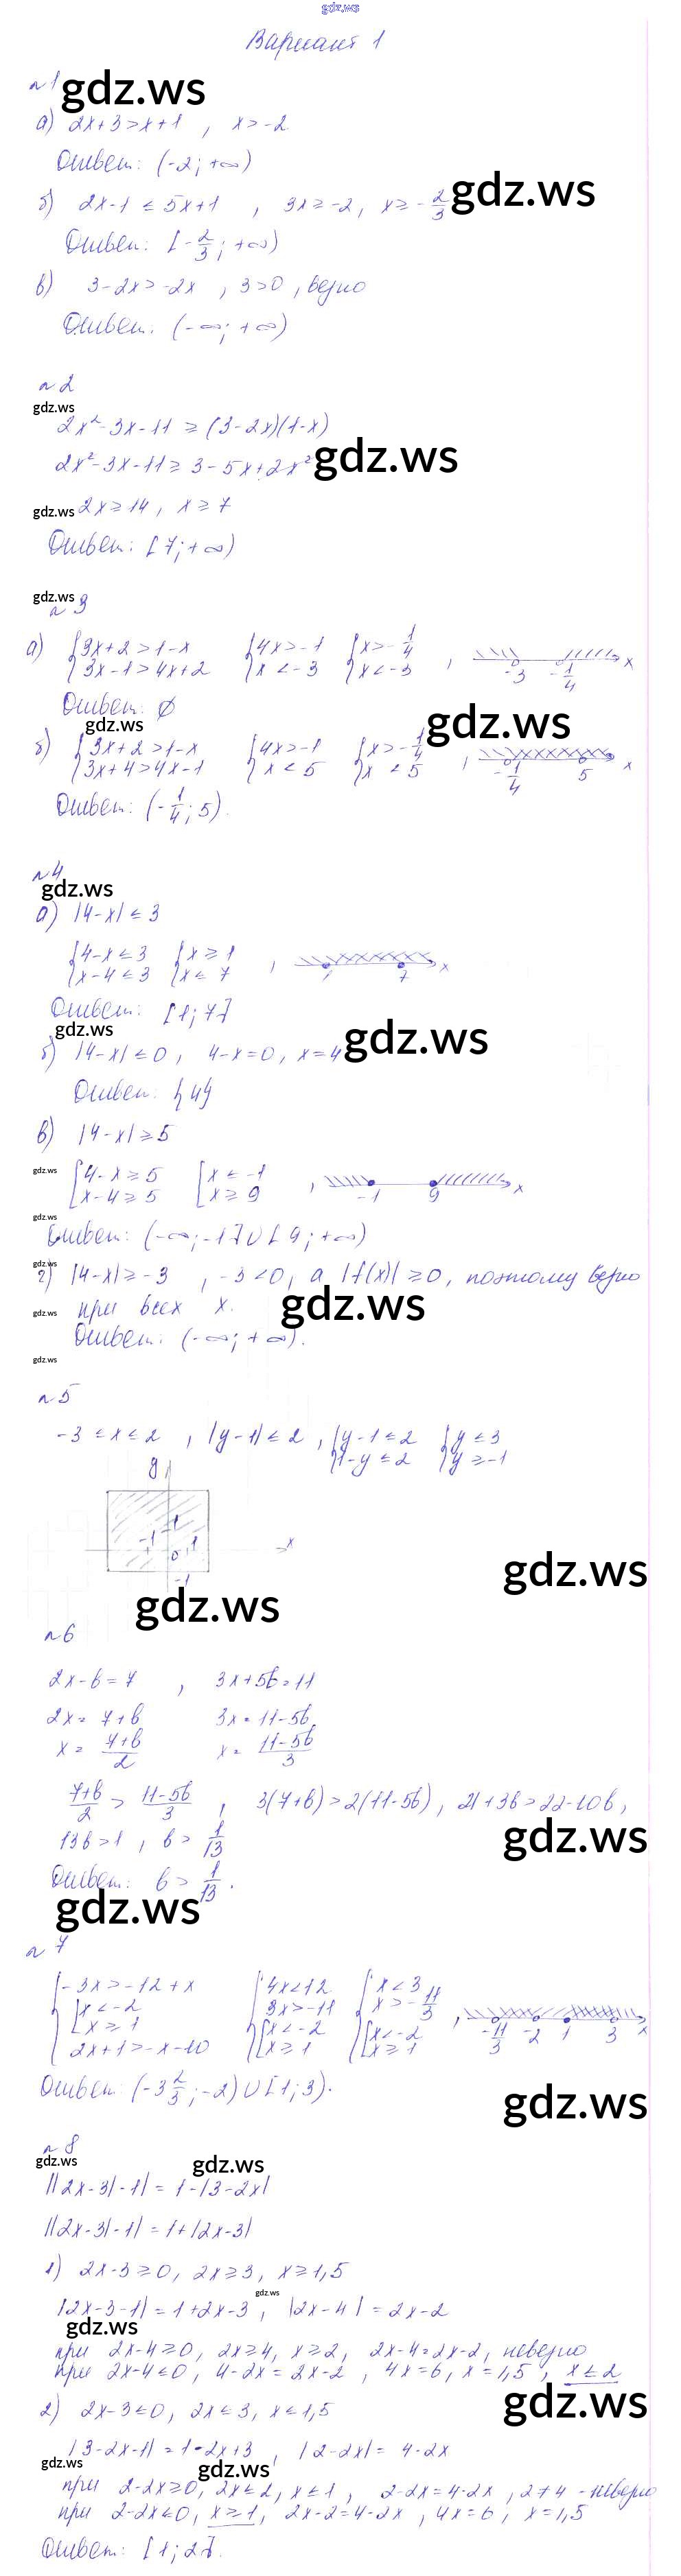 gdz.ws
Вариант 1
n 1 gdz.ws
а) 2x+3>x+1 , x>-2.
Ответ: (-2; +∞)
б) 2x-1 ≤ 5x+1 , 3x ≥ -2, x ≥ -2/3 gdz.ws
Ответ: [-2/3; +∞)
в) 3-2x>-2x , 3>0, верно
Ответ: (-∞; +∞)
n 2
gdz.ws
2x²-3x-11 ≥ (3-2x)(1-x)
2x²-3x-11 ≥ 3-5x+2x² gdz.ws
gdz.ws 2x ≥ 14, x ≥ 7
Ответ: [7; +∞)
gdz.ws
n 3
а) {3x+2>1-x {4x>-1 {x>-1/4
{3x-1>4x+2 {x<-3 {x<-3 , -3 -1/4 x
Ответ: ∅
gdz.ws gdz.ws
б) {3x+2>1-x {4x>-1 {x>-1/4
{3x+4>4x-1 {x<5 {x<5 , -1/4 5 x
Ответ: (-1/4; 5).
n 4
gdz.ws
а) |4-x| ≤ 3
{4-x ≤ 3 {x ≥ 1
{x-4 ≤ 3 {x ≤ 7 , 1 7 x
Ответ: [1; 7]
gdz.ws gdz.ws
б) |4-x| ≤ 0, 4-x=0, x=4
Ответ: {4}
в) |4-x| ≥ 5
gdz.ws [4-x ≥ 5 [x ≤ -1
[x-4 ≥ 5 [x ≥ 9 , -1 9 x
gdz.ws
Ответ: (-∞; -1] ∪ [9; +∞)
gdz.ws
г) |4-x| ≥ -3 , -3<0, а |f(x)| ≥ 0, поэтому верно
gdz.ws при всех x. gdz.ws
Ответ: (-∞; +∞).
gdz.ws
n 5
-3 ≤ x ≤ 2 , |y-1| ≤ 2 , {y-1 ≤ 2 {y ≤ 3
{1-y ≤ 2 {y ≥ -1
y
1
-1 0 1 x
-1
gdz.ws
gdz.ws
n 6
2x-b=7 , 3x+5b=11
2x = 7+b 3x = 11-5b
x = (7+b)/2 x = (11-5b)/3
(7+b)/2 > (11-5b)/3 , 3(7+b)>2(11-5b), 21+3b>22-10b,
13b>1 , b > 1/13 gdz.ws
Ответ: b > 1/13.
gdz.ws
n 7
{-3x>-12+x {4x<12 {x<3
{[x<-2 {3x>-11 {x>-11/3
{[x ≥ 1 {[x<-2 {[x<-2
{2x+1>-x-10 {[x ≥ 1 {[x ≥ 1 , -11/3 -2 1 3 x
Ответ: (-3 2/3; -2) ∪ [1; 3).
gdz.ws
n 8
gdz.ws gdz.ws
||2x-3|-1| = 1-|3-2x|
||2x-3|-1| = 1+|2x-3|
1) 2x-3 ≥ 0, 2x ≥ 3, x ≥ 1,5
gdz.ws
|2x-3-1| = 1+2x-3 , |2x-4| = 2x-2
gdz.ws
при 2x-4 ≥ 0, 2x ≥ 4, x ≥ 2, 2x-4=2x-2, неверно
при 2x-4 ≤ 0, 4-2x = 2x-2 , 4x=6, x=1,5 , x ≤ 2
2) 2x-3 ≤ 0, 2x ≤ 3, x ≤ 1,5 gdz.ws
|3-2x-1| = 1-2x+3 , |2-2x| = 4-2x
gdz.ws gdz.ws
при 2-2x ≥ 0, 2x ≤ 2, x ≤ 1 , 2-2x=4-2x , 2≠4 - неверно
при 2-2x ≤ 0, x ≥ 1, 2x-2=4-2x , 4x=6 , x=1,5
Ответ: [1; 2].